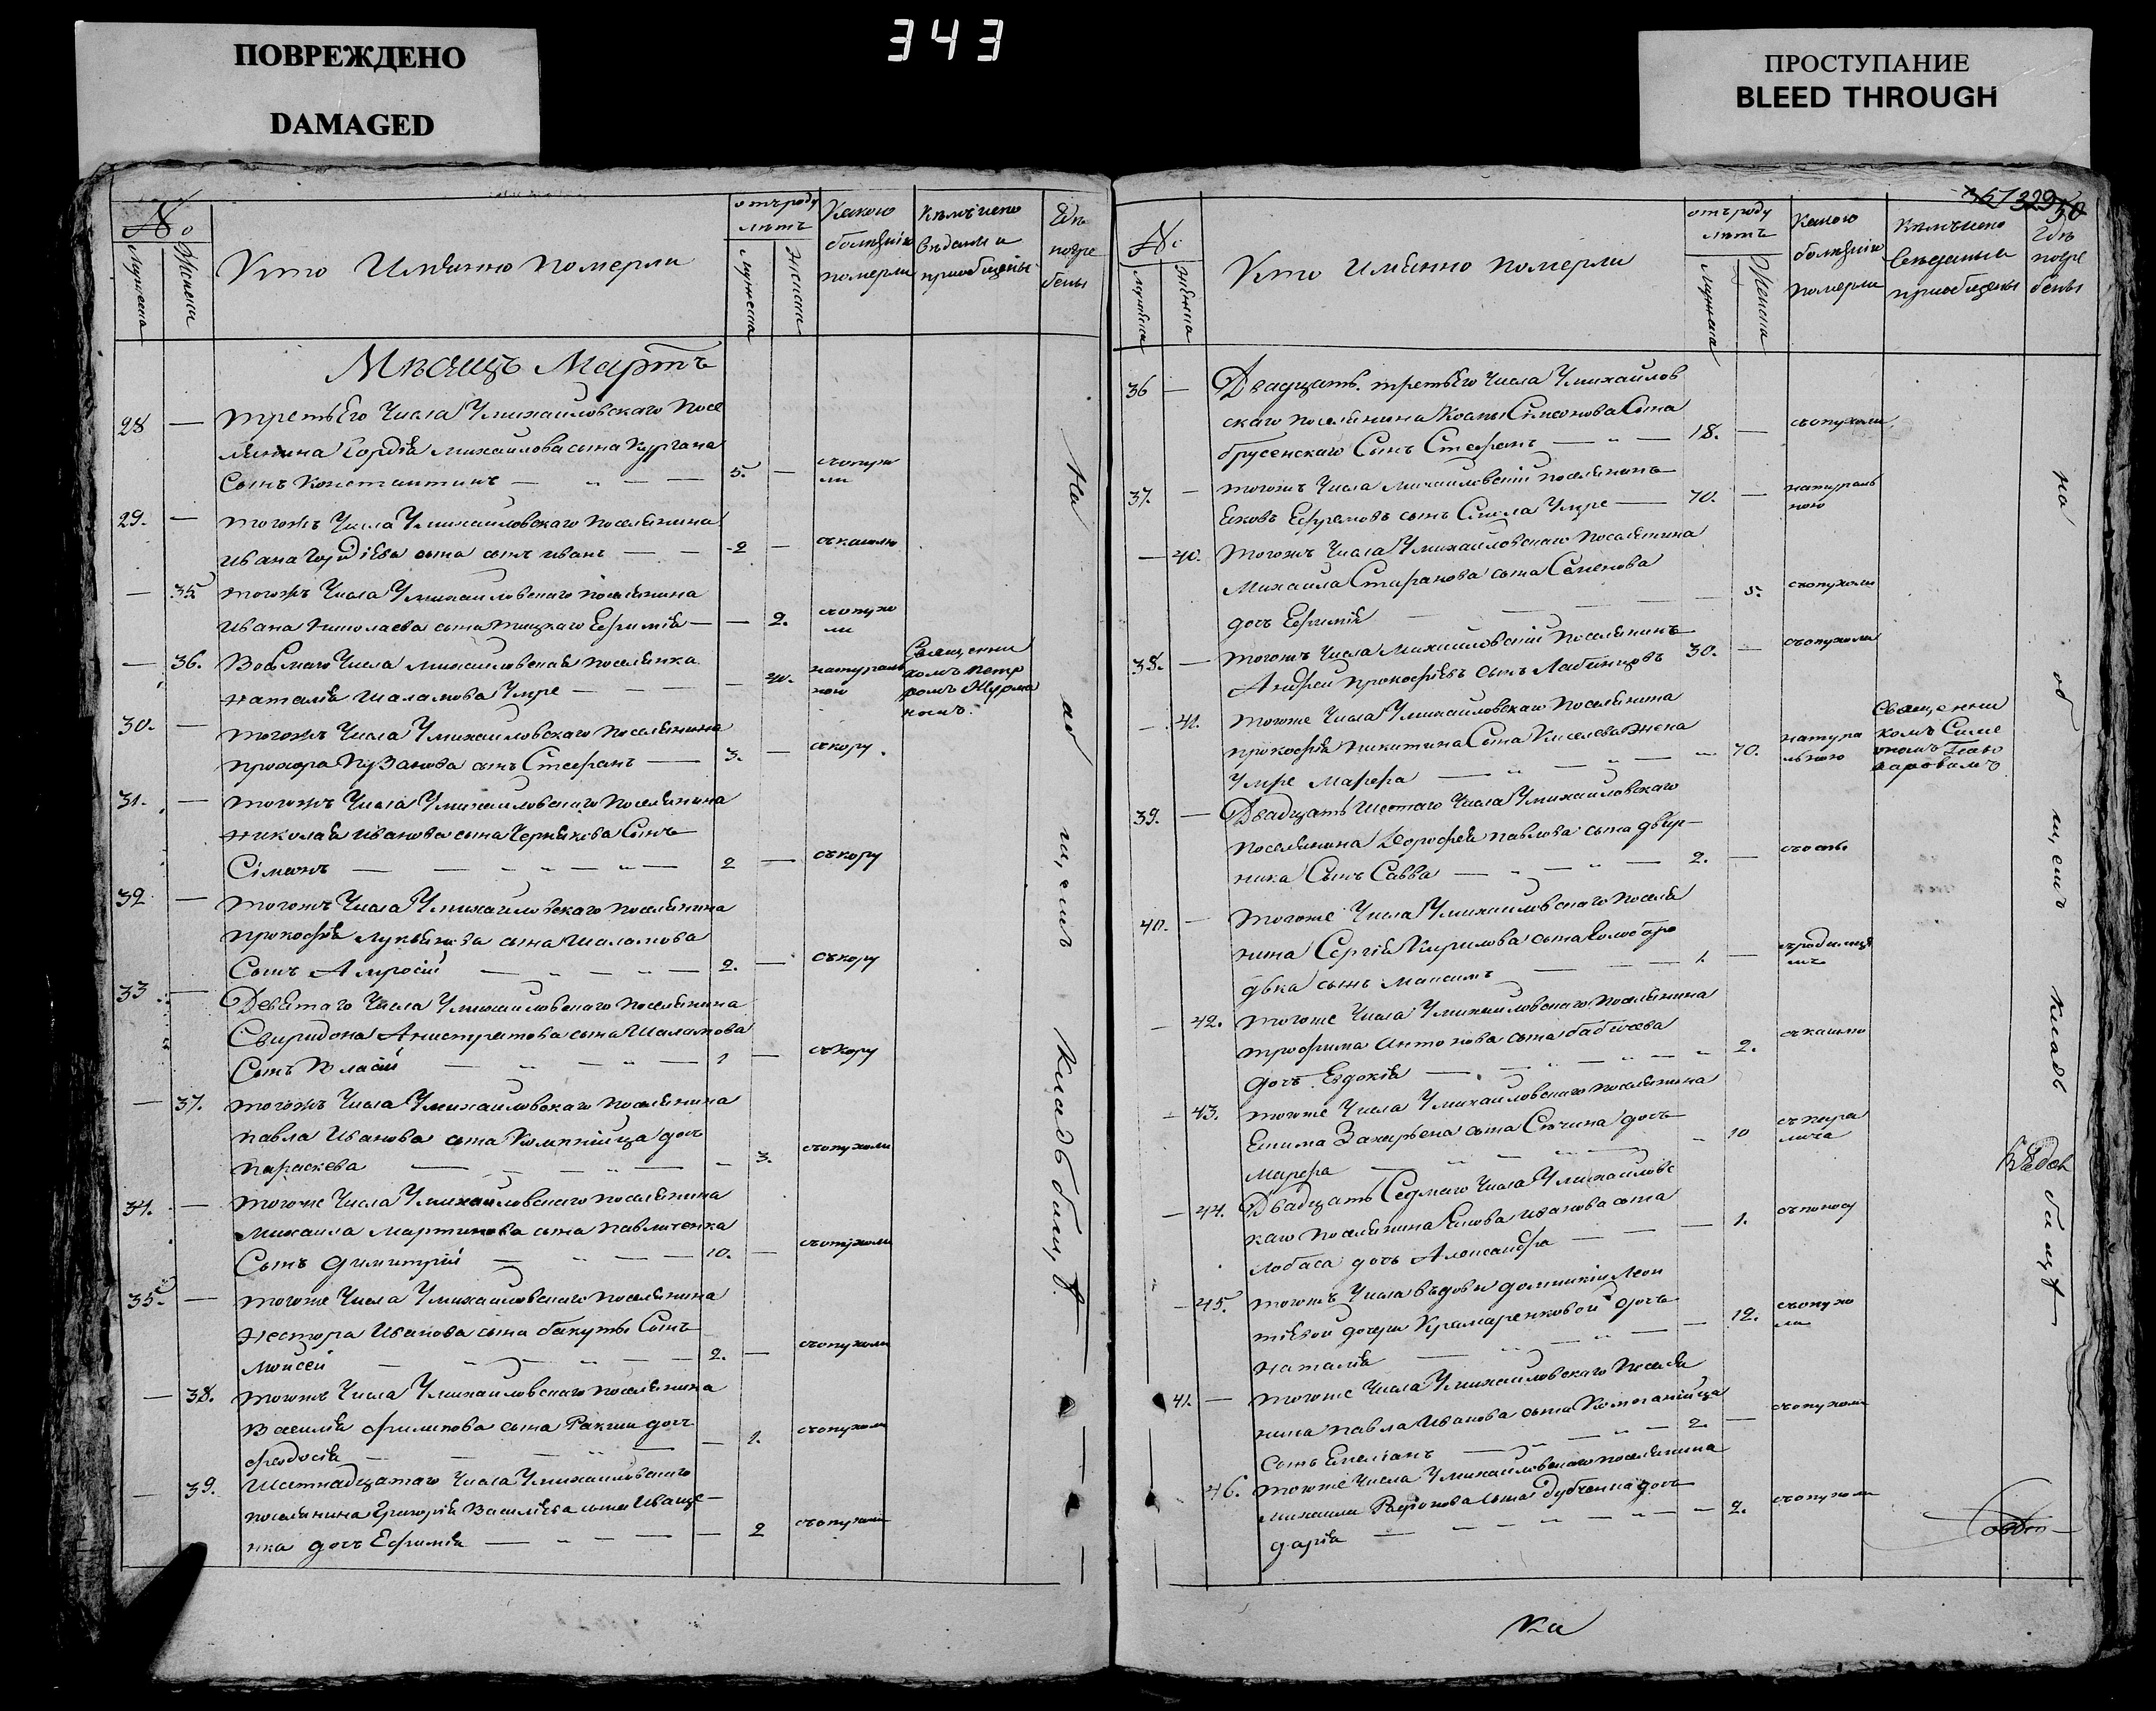 ПОВРЕЖДЕНО
DAMAGED
343
ПРОСТУПАНИЕ
BLEED THROUGH
№
Мужеска
Женска
Кто Имянно померли
отъ роду
летъ
Мужеска
Женска
Какою
болезнiю
померли
Кемъ испо
веданы и
приобщены
Где
погре
бены
Месяцъ Мартъ
28 — третьего Числа У михайловскаго посе
лянина Гордея михайлова сына Кургана
Сынъ Константинъ — 5. — съ опухо
ли
29. — тогожъ Числа У михайловскаго поселянина
Ивана Гордiева сына сынъ иванъ — 2 — съ кашлю
— 35 тогожъ Числа У михайловскаго поселянина
Ивана Николаева сына Ефимия — — 2. съ опухо
ли
— 36. Восмаго Числа михайловская поселянка
Наталiя Шаламова Умре — — 40. натураль
ною
Священни
комъ петр
комъ
30. — тогожъ Числа У михайловскаго поселянина
прохора Пузанова сынъ Стефанъ — 3. — съ кору.
31. — тогожъ Числа У михайловскаго поселянина
Николая иванова сына Чернякова Сынъ
Сiмеонъ — 2 — съ кору
32 — тогожъ Числа У михайловскаго поселянина
прокофiя Лукьянова сына Шаламова
Сынъ Амросiй — 2. — съ кору
33 — Девятаго Числа У михайловскаго поселянина
Свиридона Анистратова сына Шаламова
Сынъ Власiй — 1 — съ кору
— 37. тогожъ Числа У михайловскаго поселянина
павла Иванова сына Компанiйца дочь
параскева — 3. съ опухоли
34. — тогоже Числа У михайловскаго поселянина
михаила мартинова сына павличенка
Сынъ димитрiй — 10. — съ опухоли
35. — тогоже Числа У михайловскаго поселянина
Нестора Иванова сына бакуты Сынъ
моисей — 2. — съ опухоли
— 38. тогожъ Числа У михайловскаго поселянина
Василiя филипова сына Ракши дочь
федосiя — 1. съ опухоли
— 39. Шестнадцатаго Числа У михайловскаго
поселянина григорiя Василiева сына Иваще
нка дочь Ефимiя — — 2 съ опухоли
На об щемъ Кладбищѣ
№
Мужеска
Женска
Кто имянно померли
отъ роду
летъ
Мужеска
Женска
Какою
болезнiю
померли
Кемъ испо
веданы и
приобщены
Где
погре
бены
36 — Двадцать третьего Числа У михайлов
скаго поселянина Космы Сiмеонова Сына
брусенскаго Сынъ Стефанъ — 18. — съ опухоли
37. — тогожъ Числа михайловскiй поселянинъ
Яковъ Ефремовъ сынъ Смела Умре — 70. — натураль
ною
— 40. тогожъ Числа У михайловскаго поселянина
михаила Стефанова сына Семенова
дочь Ефимiя — 5. съ опухоли
38. — тогожъ Числа михайловскiй поселянинъ
Андрей прокофiевъ сынъ Лабинцовъ 30. — съ опухоли
— 41. тогоже Числа У михайловскаго поселянина
прокофiя никитина Сына Киселева Жена
Умре марфа — 70. натура
льною
Священни
комъ Симе
ономъ
39. — Двадцать шестаго Числа У михайловскаго
поселянина Дорофея павлова сына двир
ника Сынъ Савва — 2. — съ оспы
40. — тогоже Числа У михайловскаго поселя
нина Сергiя Кирилова сына Голоборо
дька сынъ максимъ — 1. — съ родимце
мъ
— 42. тогоже Числа У михайловскаго поселянина
трофима антонова сына бабичева
дочь Евдокiя — 2. съ кашлю
— 43. тогоже Числа У михайловскаго поселянина
Екима Захарьева сына Сечина дочь
марфа — 10 съ пара
лича
— 44. Двадцать Седмаго Числа У михайловс
каго поселянина Якова иванова сына
лобаса дочь Александра — 1. съ поносу
— 45. тогожъ Числа вдовы домникiи Леон
тiевой дочери Крамаренковой дочь
Наталiя — 12. съ опухо
ли
41. — тогоже Числа У михайловскаго поселя
нина павла Иванова сына Компанiйца
Сынъ Емелiанъ — 2 — съ опухоли
46. тогоже Числа У михайловскаго поселянина
михаила сына дубченка дочь
дарiя — 2. съ опухоли
на об щемъ Кладбищѣ